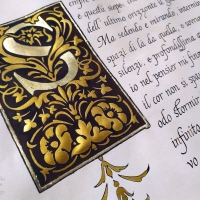 S
e questa siepe,
dell'ultimo orizzonte il guar
Ma sedendo e mirando, intermin
spazi di là da quella, e sovrum
silenzi, e profondissima
io nel pensier mi fin
il cor non si spa
odo stormir
infinito
vo